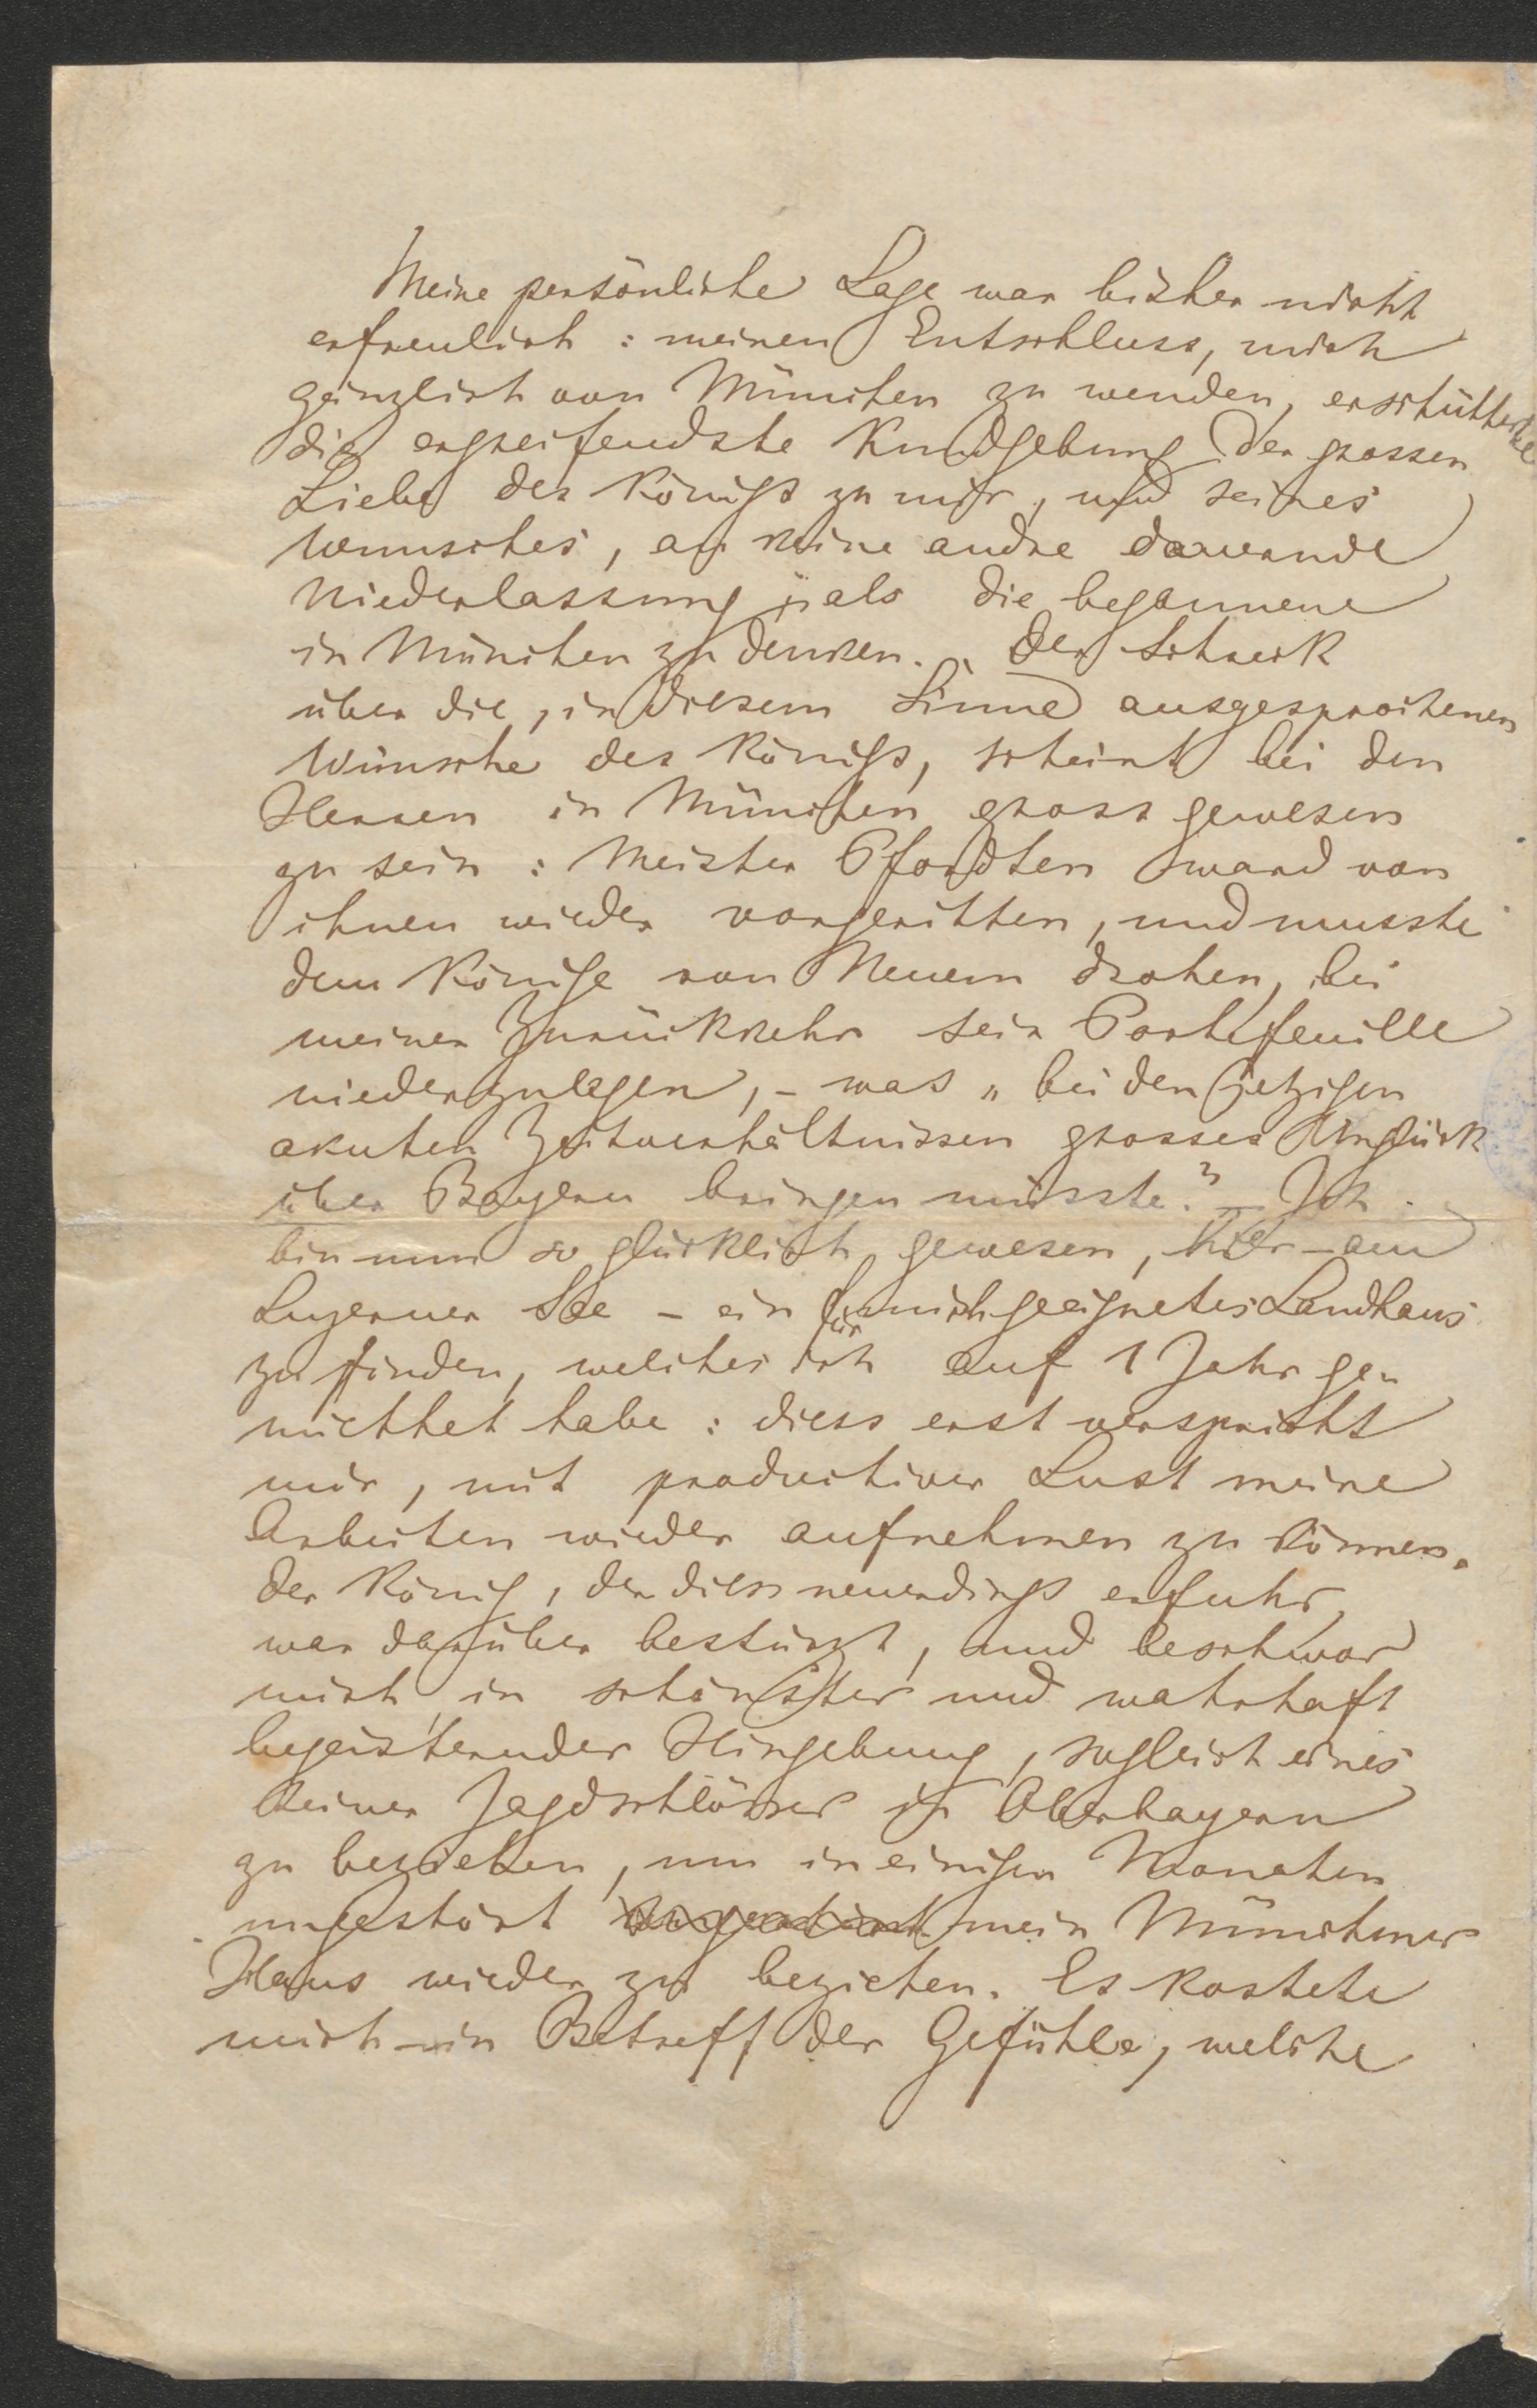 Meine persönliche Lage war bisher nicht
erfreulich : meinen Entschluss, mich
gänzlich von München zu wenden, erschütterte
die ergreifendste Kundgebung der grossen
Liebe des Königs zu mir, und seines
Wunsches, an keine andre dauernde
Niederlassung, als die begonnene
in München zu denken. Der Schreck
über die, in diesem Sinne ausgesprochenen
Wünsche des Königs, scheint bei den
Herren in München gross gewesen
zu sein : Meister Pfordten ward von
ihnen wieder vorgeritten, und musste
dem Könige von Neuem drohen, bei
meiner Zurückkehr sein Portefeuille
niederzulegen, – was „bei den jetzigen
akuten Zeitverhältnissen grosses Unglück
über Bayern bringen müsste." – Ich
bin nun so glücklich gewesen, hier – am
Luzerner See – ein für mich geeignetes Landhaus
zu finden, welches ich auf 1 Jahr ge-
miethet habe : diess erst verspricht
mir, mit productiver Lust meine
Arbeiten wieder aufnehmen zu können.
Der König, der diess neuerdings erfuhr,
war darüber bestürzt, und beschwor
mich in schönster und wahrhaft
begeisternder Hingebung, sogleich eines
seiner Jagdschlösser in Oberbayern
zu beziehen, um in einigen Monaten
ungestört mein Münchner
Haus wieder zu beziehen. Es kostete
mich – in Betreff der Gefühle, welche